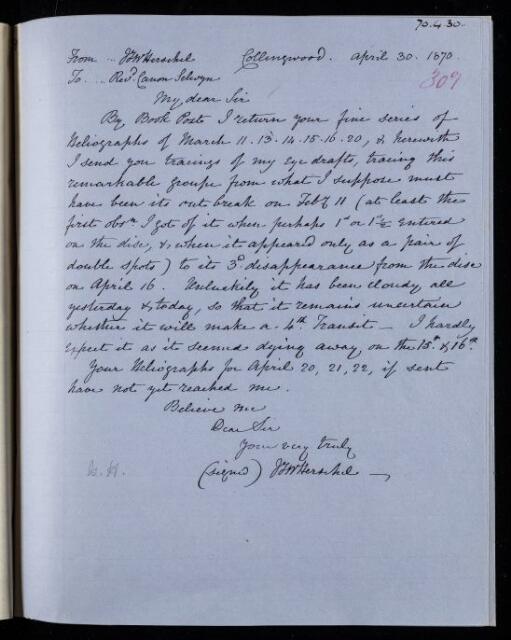 70.4.30.
From .. JFWHerschel Collingwood. April 30. 1870.
309
To .... Revd. Canon Selwyn
My dear Sir
By Book Post I return your fine series of
Heliographs of March 11.13.14.15.16.20, & herewith
I send you tracings of my eye drafts, tracing this
remarkable group from what I suppose must
have been its outbreak on Feby 11 (at least the
first obsn. I got of it when perhaps 1d or 1d½ entered
on the disc, & when it appeared only as a pair of
double spots) to its 3d disappearance from the disc
on April 16. Unluckily it has been cloudy all
yesterday & today, so that it remains uncertain
whether it will make a 4th Transit — I hardly
expect it as it seemed dying away on the 15th & 16th.
Your Heliographs for April 20, 21, 22, if sent
have not yet reached me.
Believe me
Dear Sir
Your very truly
(signed) JFWHerschel —